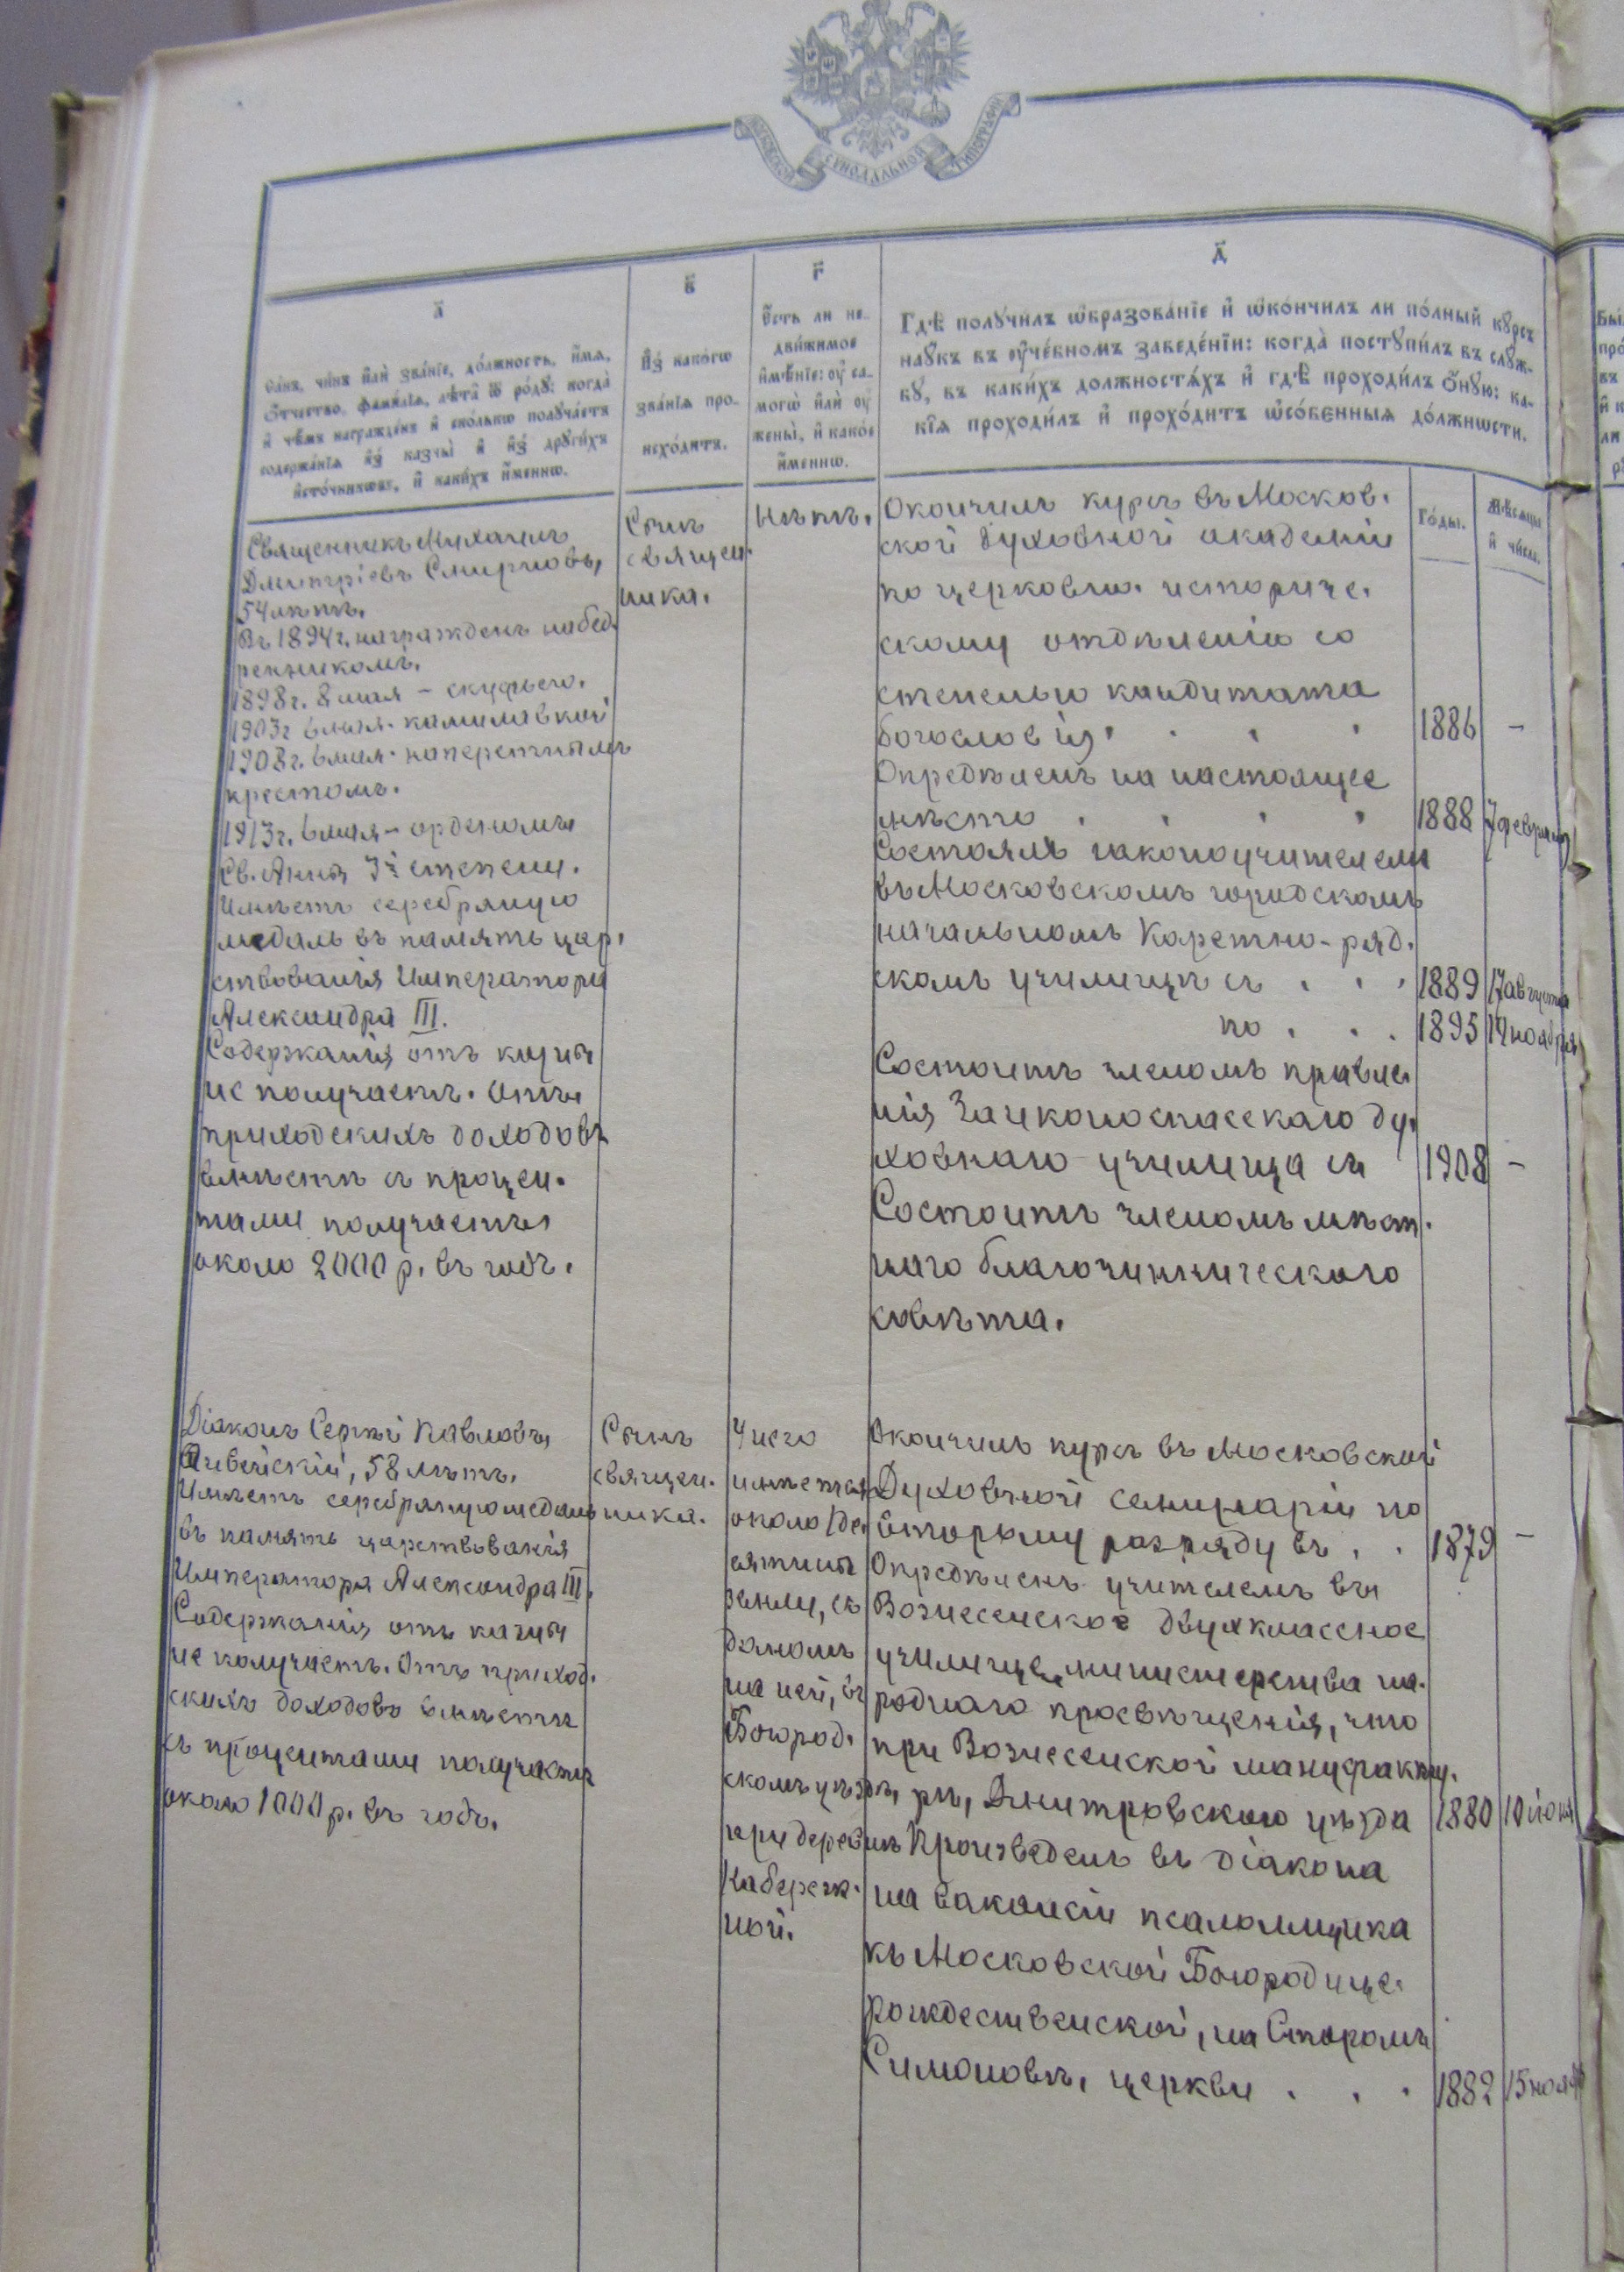 МОСКОВСКОЙ СѴНОДАЛЬНОЙ ТИПОГРАФІИ
а҃
Са́нъ, чи́нъ и҆лѝ зва́нїе, до́лжность, и҆́мѧ,
ѻ҆́тчество, фамі́лїѧ, лѣ́та ѿ ро́дꙋ: когда̀
и҆ чѣ́мъ награжде́нъ и҆ ско́лькѡ полꙋча́етъ
содержа́нїѧ и҆з̾ казны̀ и҆ и҆з̾ дрꙋги́хъ
и҆сто́чникѡвъ, и҆ каки́хъ и҆́меннѡ.
в҃
И҆з̾ како́гѡ
зва́нїѧ про-
исхо́дитъ.
г҃
Є҆́сть ли не-
дви́жимое
и҆мѣ́нїе: ᲂу҆ са-
могѡ̀ и҆лѝ ᲂу҆
жены̀, и҆ како́е
и҆́меннѡ.
д҃
Гдѣ̀ полꙋчи́лъ ѡ҆бразова́нїе и҆ ѡ҆ко́нчилъ ли по́лный кꙋ́рсъ
наꙋ́къ въ ᲂу҆че́бномъ заведе́нїи: когда̀ постꙋпи́лъ въ слꙋ́ж-
бꙋ, въ каки́хъ должностѧ́хъ и҆ гдѣ̀ проходи́лъ ѻ҆́нꙋю: ка-
кі̑ѧ проходи́лъ и҆ прохо́дитъ ѡ҆со́бєнныѧ до́лжнѡсти.
Го́ды.
Мѣ́сѧцы
и҆ чи́сла.
Священникъ Михаилъ
Дмитріевъ Смирновъ,
54 лѣтъ.
Въ 1894 г. награжденъ набед.
ренникомъ.
1898 г. 8 мая – скуфьею.
1903 г 6 мая. камилавкой
1908 г. 6 мая. наперстнымъ
крестомъ.
1913 г. 6 мая – орденомъ
Св. Анны 3й степени.
Имѣетъ серебряную
медаль въ память цар.
ствованія Императора
Александра III.
Содержанія отъ казны
не получаетъ. Отъ
приходскихъ доходовъ
вмѣстѣ съ процен.
тами получаетъ
около 2000 р. въ годъ.
Сынъ
священ.
ника.
Нѣтъ.
Окончилъ курсъ въ Москов.
ской духовной академіи
по церковно. историче.
скому отдѣленію со
степенью кандитата
богословія . . . 1886 –
Опредѣленъ на настоящее
мѣсто . . . . 1888 7 февраля
Состоялъ законоучителемъ
въ Московскомъ городскомъ
начальномъ Каретно-ряд.
скомъ училищѣ съ . . . 1889 17 августа
по . . . 1895 14 ноября
Состоитъ членомъ правле.
нія Заиконоспасскаго ду.
ховнаго училища съ 1908 –
Состоитъ членомъ мѣст.
наго благочинническаго
совѣта.
Діаконъ Сергѣй Павловъ
Ливейскій, 58 лѣтъ.
Имѣетъ серебряную медаль
въ память царствованія
Императора Александра III.
Содержанія отъ казны
не получаетъ. Отъ приход.
скихъ доходовъ вмѣстѣ
съ процентами получаетъ
около 1000 р. въ годъ.
Сынъ
священ.
ника.
У него
имѣется
около 1 де.
сятины
земли, съ
домомъ
на ней, въ
Богород.
скомъ уѣздѣ,
при деревнѣ
Набереж.
ной.
Окончилъ курсъ въ Московской
Духовной семинаріи по
второму разряду въ . . 1879 –
Опредѣленъ учителемъ въ
Вознесенское двухклассное
училище министерства на.
роднаго просвѣщенія, что
при Вознесенской мануфакту.
рѣ, Дмитровскаго уѣзда 1880 10 іюня
Произведенъ въ діакона
на вакансіи псаломщика
къ Московской Богородице.
рождественской, на Старомъ
Симоновѣ, церкви . . . 1882 15 нояб